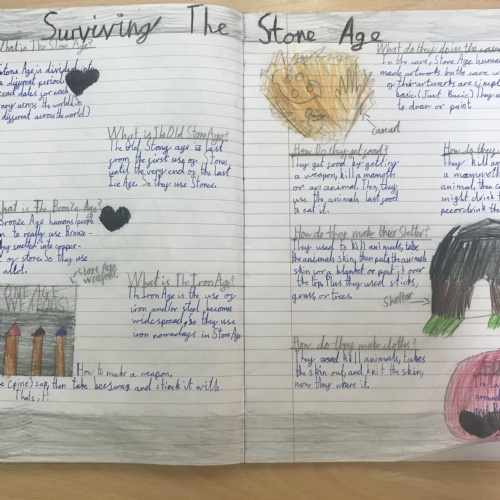 Surviving The Stone Age
What is The Stone Age?
Stone Age is divided into
different period
each dates (or each
vary across the world. So
different across the world)
What is The Old Stone Age?
The Old Stone age is last
from the first use of Stones
until the very end of the last
Ice Age. So they use Stones.
What is The Bronze Age?
Bronze Age humans
to really use Bronze -
they smelted into copper -
or store. So they use
allot.
Stone Age
weapons
What is The Iron Age?
The Iron Age is the use of
iron and/or steel becomes
widespread, so they use
iron nowadays in Stone Age
How to make a weapon.
(pine) sap, then take beeswax and stick it with
Thats it!
What do they do in the cave
In the cave, Stone Age human
made artworks on the cave w
or their artworks are simple
basic (Just Basic). They
to draw or paint
caveart
How Do they get food?
They get food by getting
a weapon, kill a mamoth
or an animal. Then, they
use the animals last food
to eat it.
How do they
They kill an
a mammoth
animal, then
might drink
How do they make their Shelter?
They used to kill animals, take
the animals skin, then puts the animals
skin or a blanket or put it over
the top. Plus they used sticks,
grass, or trees.
Shelter
How do they make clothes?
They used kill animals, takes
the skin out, and knit the skin,
now they wore it.
around